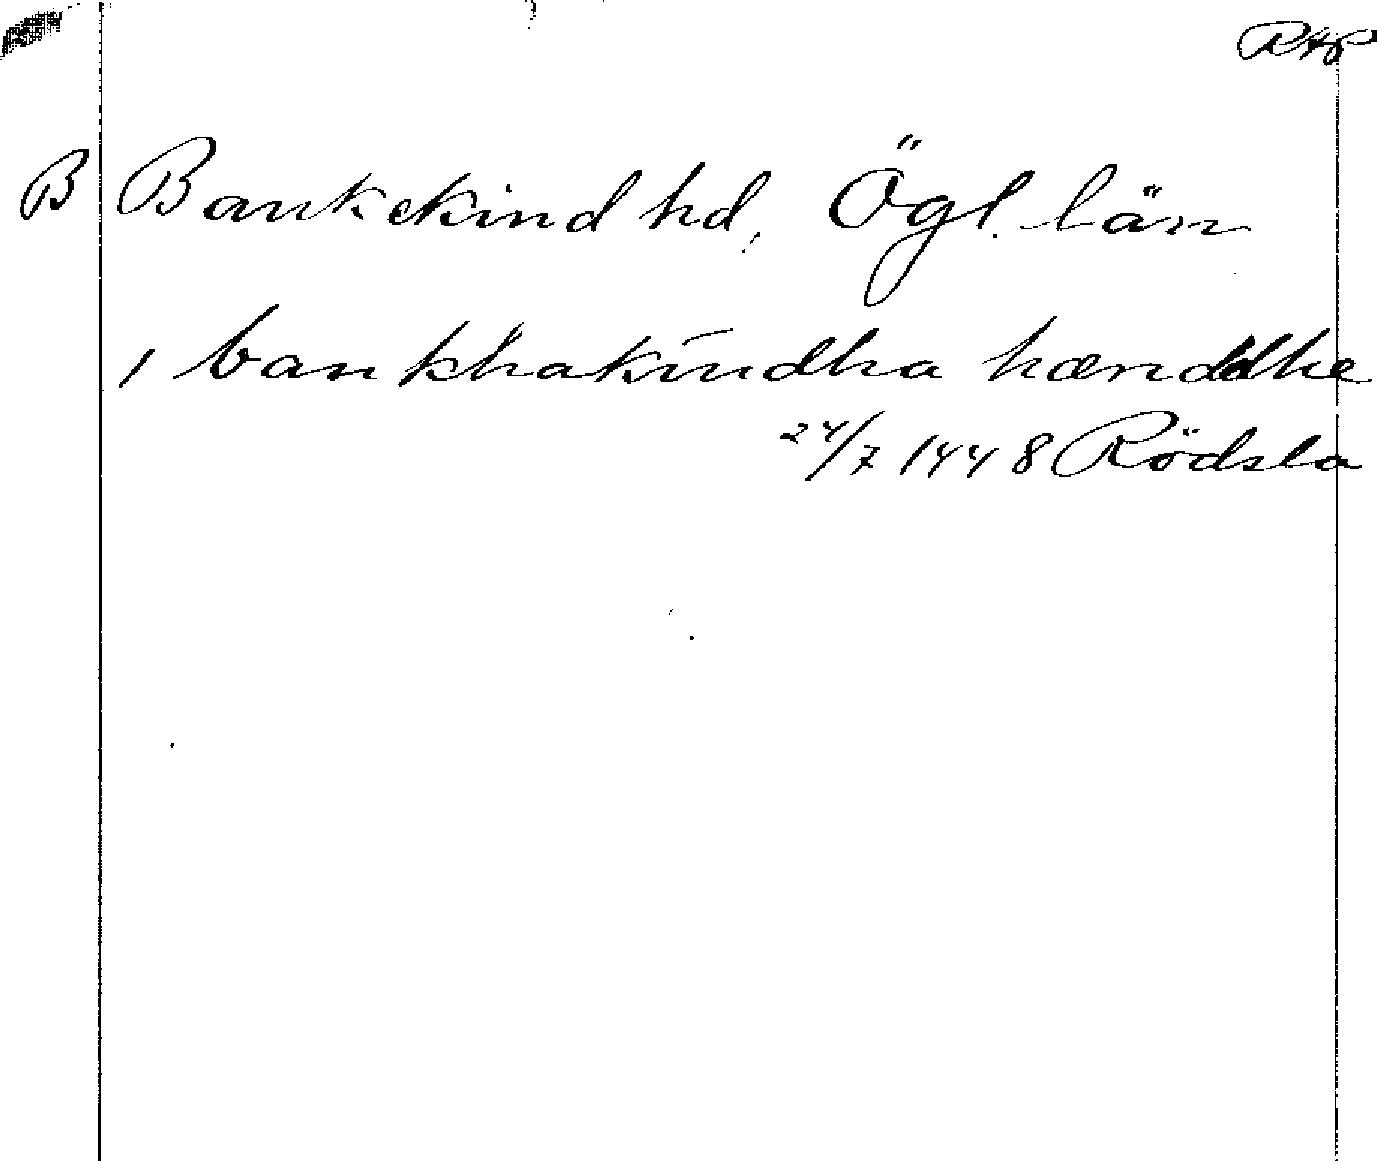 RAP
B Bankekind hd, Ögl. län
, bankhakindha hænddhe
24/7 1448 Rödsla